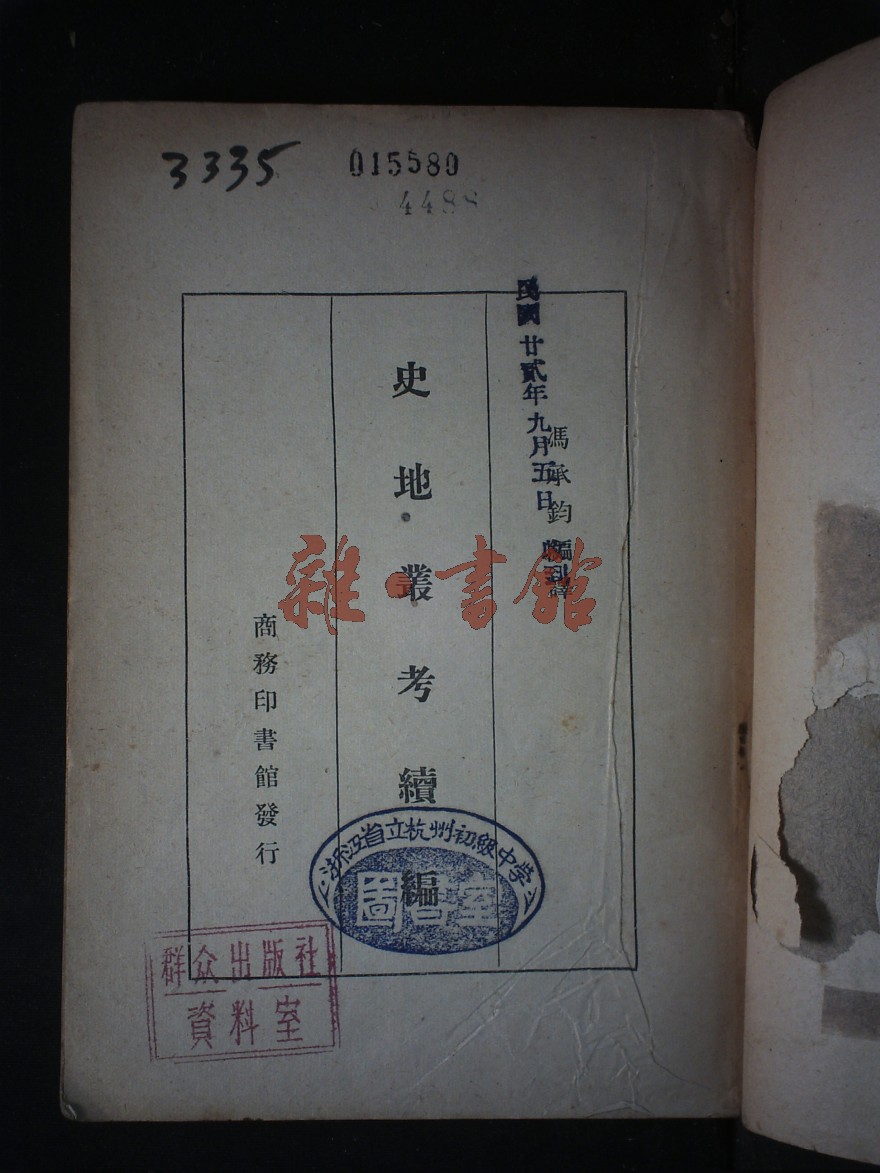 3335
015580
4488
民國廿貳年九月五日
馮承鈞編譯
史地叢考續編
商務印書館發行
雜·書館
浙江省立杭州初級中学
圖書室
群众出版社
資料室